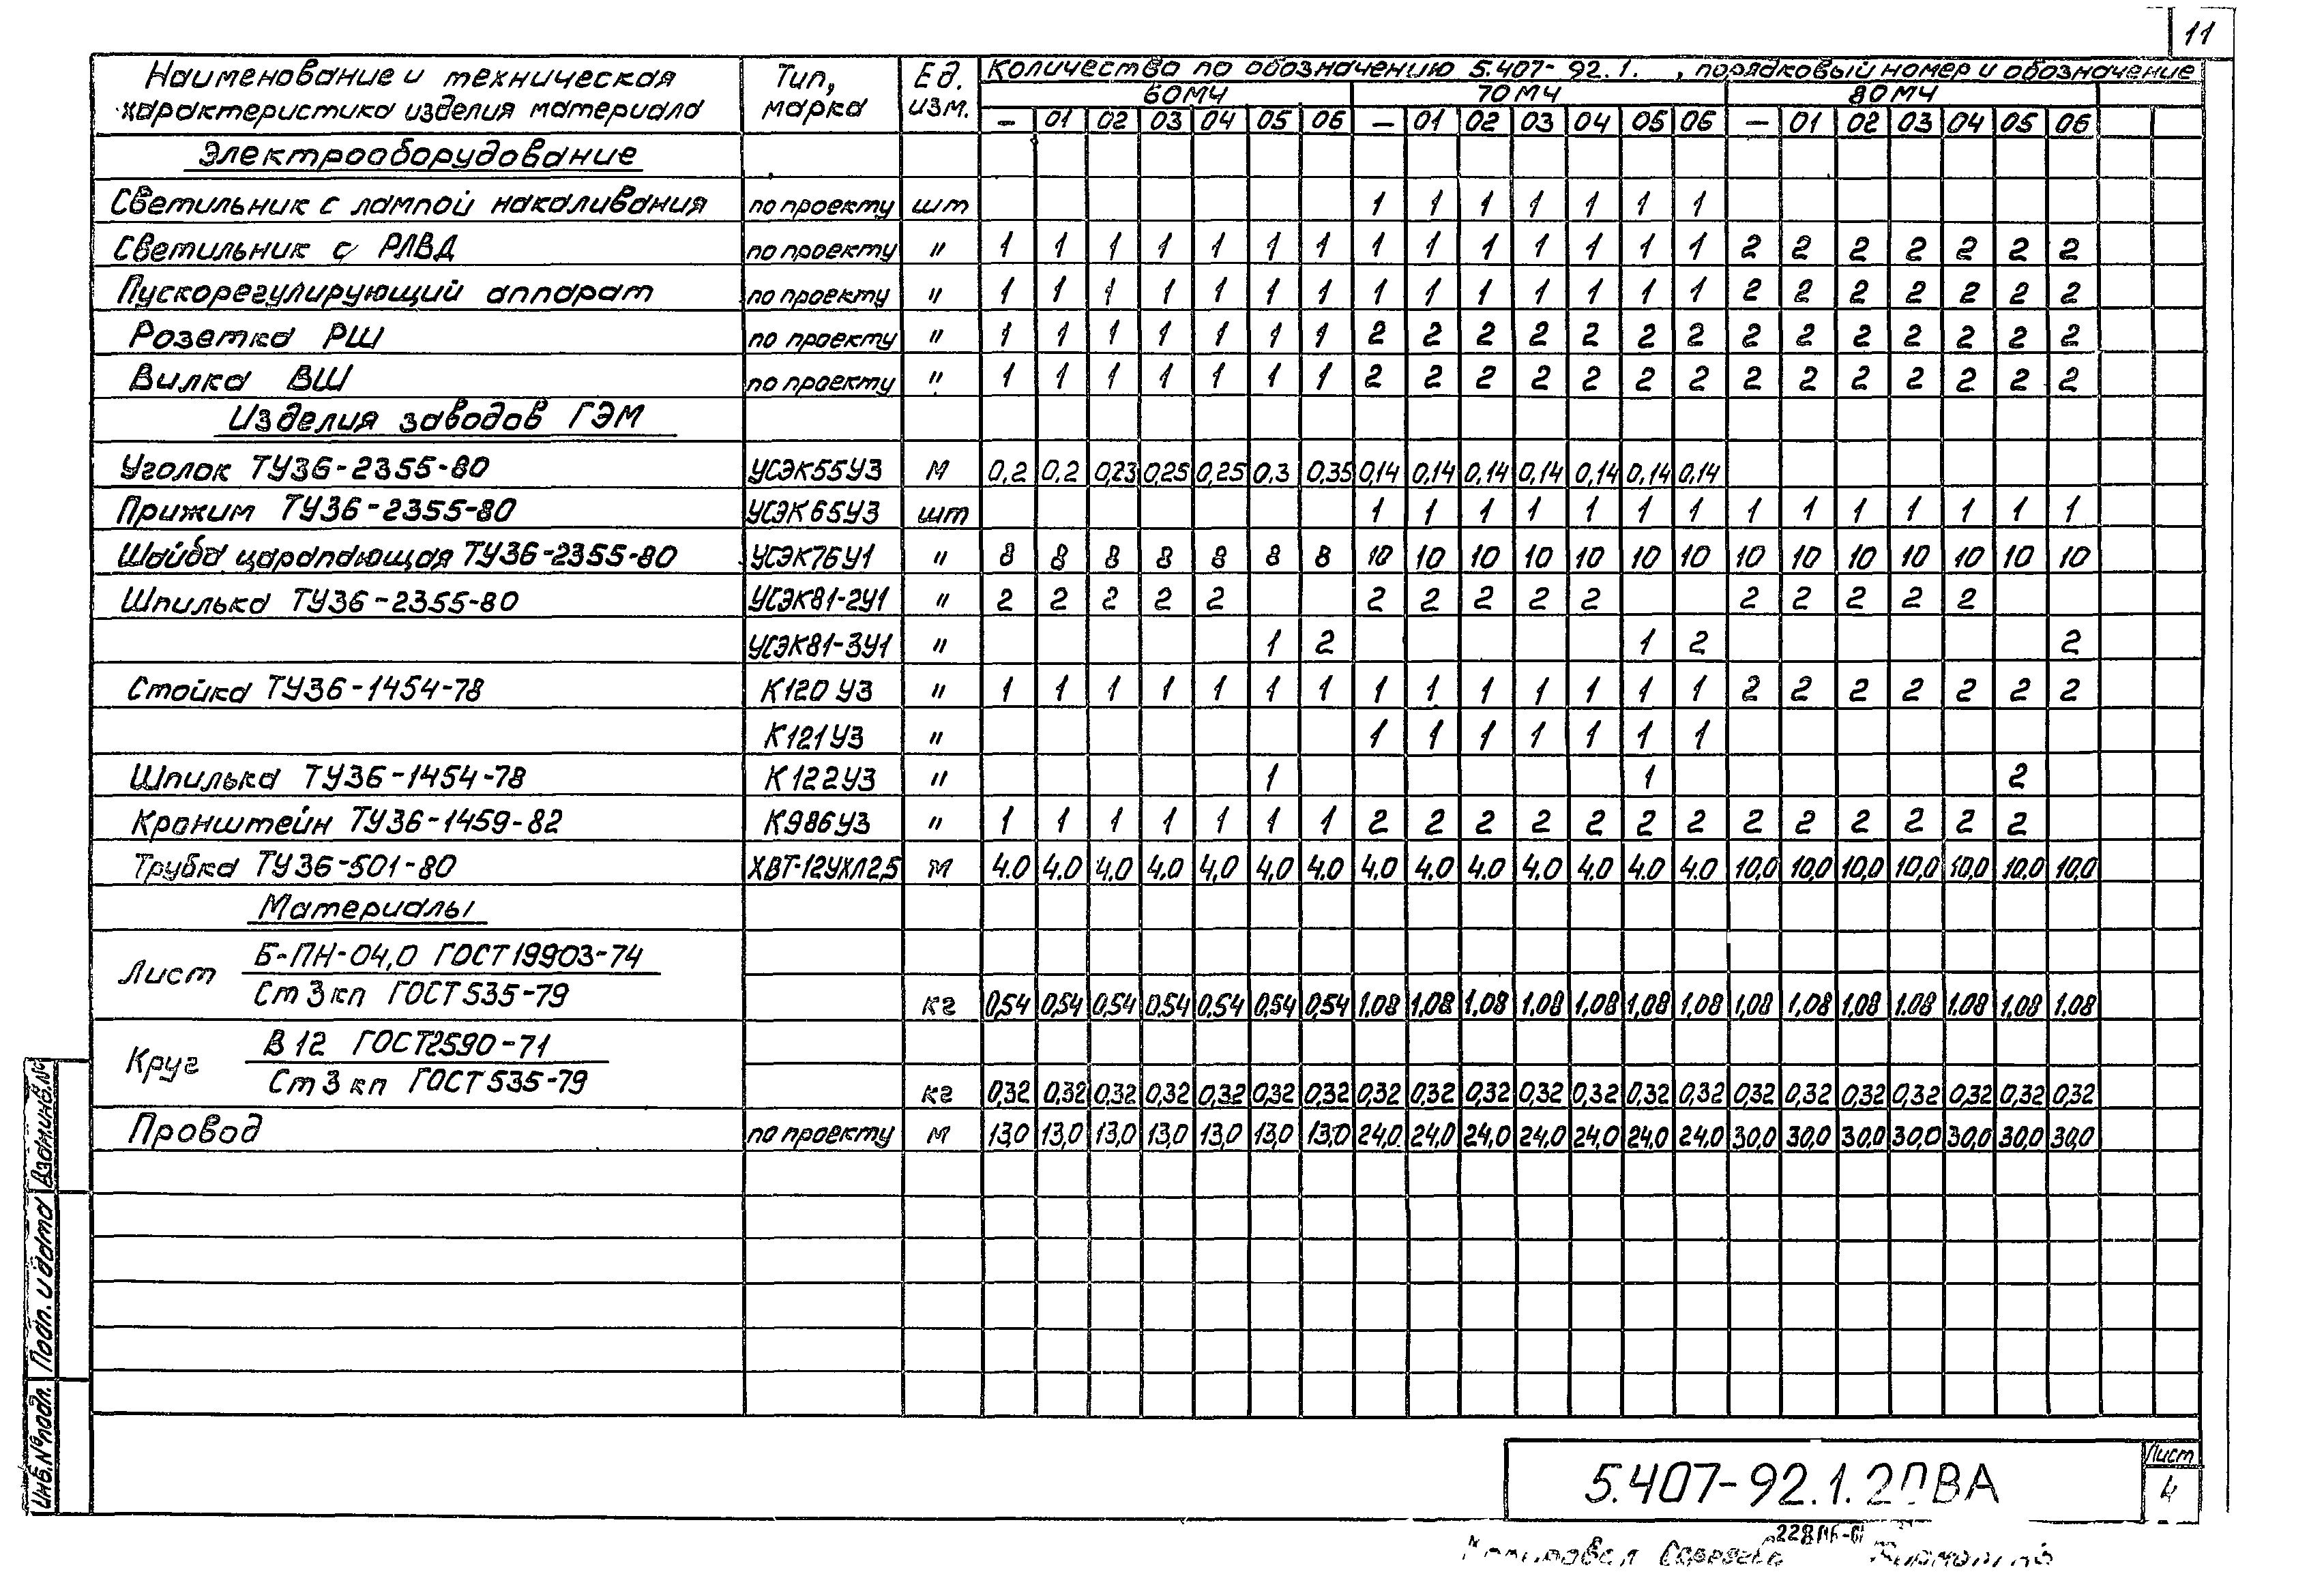 11
Наименование и техническая характеристика изделия материала | Тип, марка | Ед. изм. | Количество по обозначению 5.407-92.1. , порядковый номер и обозначение
60МЧ | 70МЧ | 80МЧ
— 01 02 03 04 05 06 — 01 02 03 04 05 06 — 01 02 03 04 05 06
Электрооборудование
Светильник с лампой накаливания по проекту шт 1 1 1 1 1 1 1
Светильник с РЛВД по проекту " 1 1 1 1 1 1 1 1 1 1 1 1 1 1 2 2 2 2 2 2 2
Пускорегулирующий аппарат по проекту " 1 1 1 1 1 1 1 1 1 1 1 1 1 1 2 2 2 2 2 2 2
Розетка РШ по проекту " 1 1 1 1 1 1 1 2 2 2 2 2 2 2 2 2 2 2 2 2 2
Вилка ВШ по проекту " 1 1 1 1 1 1 1 2 2 2 2 2 2 2 2 2 2 2 2 2 2
Изделия заводов ГЭМ
Уголок ТУ36-2355-80 УСЭК55У3 М 0,2 0,2 0,23 0,25 0,25 0.3 0,35 0,14 0,14 0,14 0,14 0,14 0,14 0,14
Прижим ТУ36-2355-80 УСЭК65У3 шт 1 1 1 1 1 1 1 1 1 1 1 1 1 1
Шайба царапающая ТУ36-2355-80 УСЭК76У1 " 8 8 8 8 8 8 8 10 10 10 10 10 10 10 10 10 10 10 10 10 10
Шпилька ТУ36-2355-80 УСЭК81-2У1 " 2 2 2 2 2 2 2 2 2 2 2 2 2 2 2
УСЭК81-3У1 " 1 2 1 2 2
Стойка ТУ36-1454-78 К120 У3 " 1 1 1 1 1 1 1 1 1 1 1 1 1 1 2 2 2 2 2 2 2
К121У3 " 1 1 1 1 1 1 1
Шпилька ТУ36-1454-78 К122У3 " 1 1 2
Кронштейн ТУ36-1459-82 К986У3 " 1 1 1 1 1 1 1 2 2 2 2 2 2 2 2 2 2 2 2 2
Трубка ТУ36-501-80 ХВТ-12УХЛ2,5 М 4.0 4.0 4.0 4.0 4,0 4,0 4.0 4,0 4.0 4.0 4.0 4.0 4.0 4.0 10,0 10,0 10,0 10,0 10,0 10,0 10,0
Материалы
Лист Б-ПН-04,0 ГОСТ 19903-74
Ст 3 кп ГОСТ 535-79 кг 0,54 0,54 0,54 0,54 0,54 0,54 0,54 1.08 1,08 1.08 1,08 1,08 1,08 1,08 1,08 1,08 1,08 1.08 1.08 1.08 1.08
Круг В 12 ГОСТ2590-71
Ст 3 кп ГОСТ 535-79 кг 0,32 0,32 0,32 0,32 0,32 0,32 0,32 0,32 0,32 0,32 0,32 0,32 0,32 0,32 0,32 0,32 0,32 0,32 0,32 0,32 0,32
Провод по проекту М 13,0 13,0 13,0 13,0 13,0 13,0 13,0 24,0 24,0 24,0 24,0 24,0 24,0 24,0 30,0 30,0 30,0 30,0 30,0 30,0 30,0
Взам.инв.№
Подп. и дата
Инв.№подл.
5.407-92.1.20ВА
Лист
4
Копировал